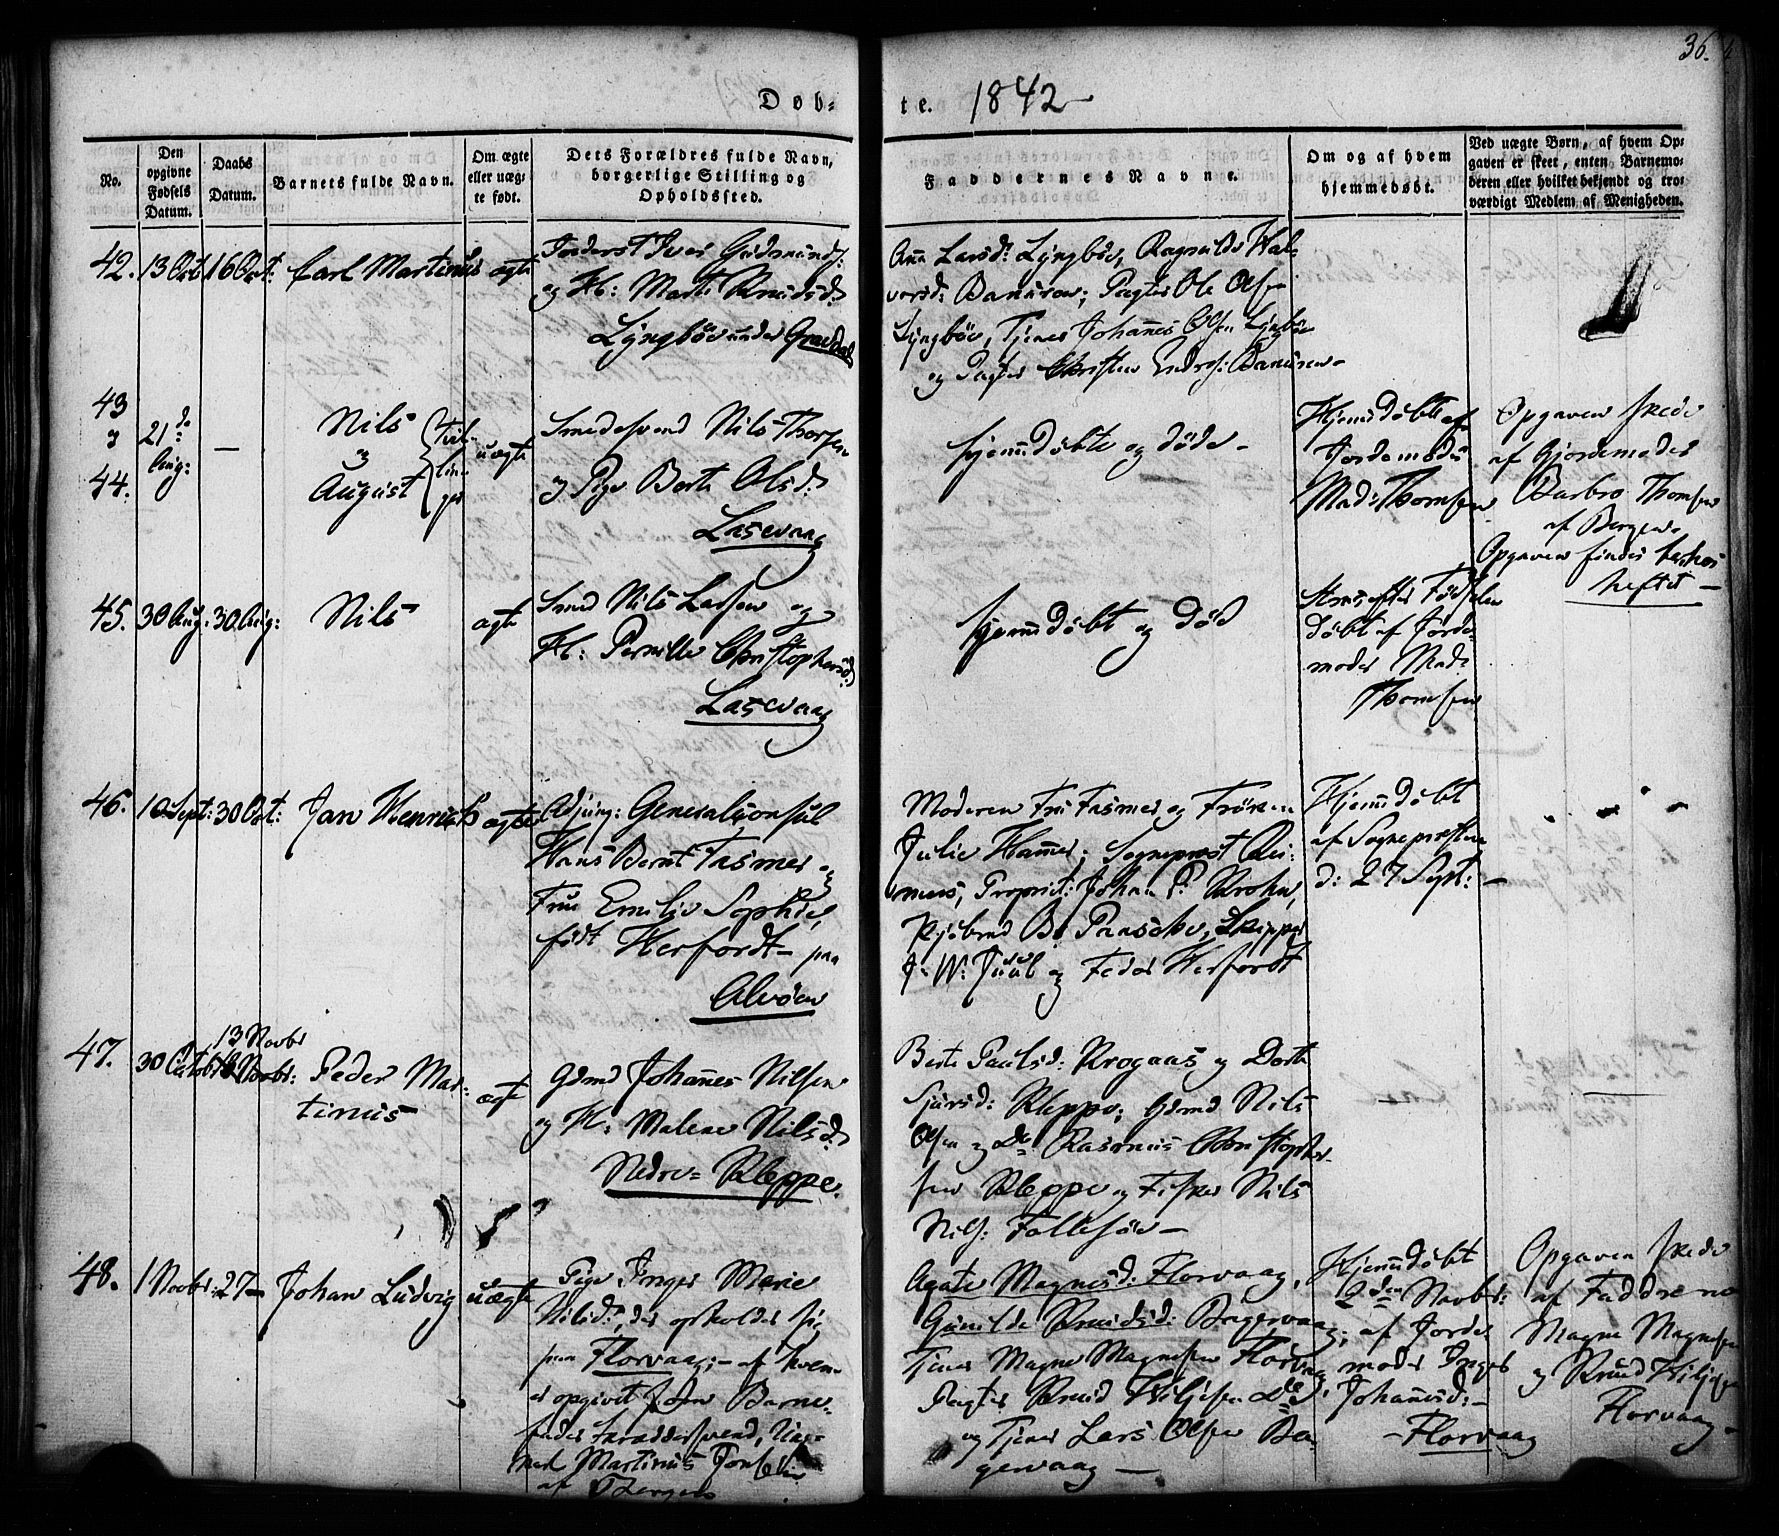 36.
Døb-
te. 1842
No.
Den opgivne Fødsels Datum.
Daabs Datum.
Barnets fulde Navn.
Om ægte eller uægte født.
Dets Forældres fulde Navn, borgerlige Stilling og Opholdssted.
Faddernes Navne.
Om og af hvem hjemmedøbt.
Ved uægte Børn, af hvem Opgaven er skeet, enten Barnemoderen eller hvilket bekjendt og troværdigt Medlem af Menigheden.
42. 13 Oct 16 Oct: Carl Martinus ægte
Iver Gudmunds:
og H: Marti Knudsd:
Lyngbøe under Gravdal
Ana Larsd: Lyngbøe, Ragnilde Hal-
vorsd: Banuren; Pagter Ole Olsen
Lyngbøe, Tjener Johannes Olsen Lyngbøe
og Pagter Christen Endres: Banuren-
43
og
44.
21de
Aug:
—
Nils
og
August
Tvil-
lin-
ger
uægte
Smedesvend Nils Thorsen
og Pige Berte Olsd:
Laxevaag
hjemmdøbte og døde-
Hjemmdøbte af
Jordemoder
Mad: Thomsen
Opgaven skede
af Gjordemoder
Barbro Thomsen
af Bergen.
Opgaven findes
heftet -
45. 30 Aug: 30 Aug: Nils ægte
Smed Nils Larsen og
H: Pernille Christophersd:
Laxevaag
hjemmdøbt og død
Strax efter Fødselen
døbt af Jorde-
moder Mad:
Thomsen
46. 10 Sept: 30 Oct: Jan Henrich ægte
Generalconsul
Hans Bernt Fasmer og
Frue Emilie Sophie,
født Herfordt- paa
Alvøen
Moderen Fru Fasmer og Frøken
Julie Hammer; Sogneprest Rei-
mers, Propriet: Johan P: Krohn,
Kjøbmd B. Paasche, Skipper
J. W: Juul og Peder Herfordt
Hjemmdøbt
af Sognepresten
d: 27 Sept: -
47. 30 Octob 13 Novbr
Peder Mar-
tinus
ægte
Gdmd Johannes Nilsen
og H: Malene Nilsd:
Nedre= Kleppe.
Berte Paulsd: Krogaas og Dorte
Sjursd: Kleppe; Gdmd Nils
Olsen og Do Rasmus Christopher-
sen Kleppe og Fisker Nils
Nils: Follesøe-
48. 1 Novbr: 27 - Johan Ludvig uægte
Pige Inger Marie
Nilsd:, der opholder sig
paa Florvaag; - af hvem
er opgivet som Barne-
fader Farversvend, Ung-
karl Martinus
af Bergen
Agate Magnesd: Florvaag,
Gunilde Knudsd: Bagervaag;
Tjener Magne Magnesen Florvaag
Pagter Knud Do,
og Tjener Lars Olsen Ba-
gervaag -
Hjemmdøbt
2den Novbr:
af Jorde-
moder Inger
Johannesd:-
- Florvaag
Opgaven skede
af Fadderne
Magne Magnesen
og Knud
Florvaag-